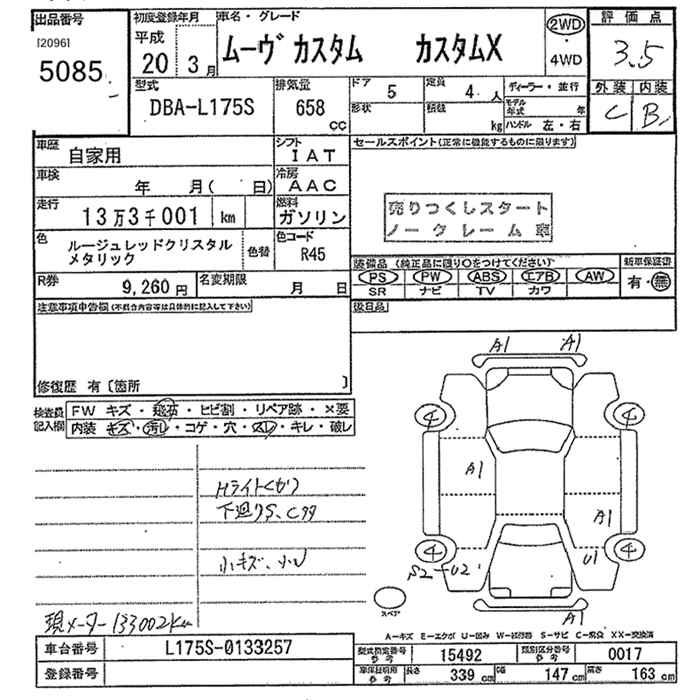 出品番号
[2096]
5085
初度登録年月
平成
20 3月
車名・グレード
ムーヴ カスタム カスタムX
2WD
・
4WD
評価点
3.5
外装 内装
C B
型式
DBA-L175S
排気量
658
CC
ドア 5
定員 4 人
形状
積載 kg
ディーラー・並行
モデル年式 年
ハンドル 左・右
車歴
自家用
シフト
IAT
車検
年 月( 日)
冷房
AAC
走行
13万3千001 km
燃料
ガソリン
色
ルージュレッドクリスタル
メタリック
色替
色コード
R45
R券
9,260円
名変期限
月 日
セールスポイント(正常に機能するものに限ります)
売りつくしスタート
ノークレーム車
装備品 (純正品に限り○をつけてください)
新車保証書
PS PW ABS エアB AW
有・無
SR ナビ TV カワ
後日品
注意事項申告欄(不具合内容等は具体的に記入して下さい)
修復歴 有〔箇所 〕
検査員
記入欄
FW キズ・飛石・ヒビ割・リペア跡・×要
内装 キズ・汚レ・コゲ・穴・スレ・キレ・破レ
Hライトくもり
下廻りS、Cタ
小キズ、小U
現メーター133002Km
A1 A1
4 4
A1
A1
4 4
S2-U2
U1
A1
スペア
A-キズ E-エクボ U-凹み W-補修跡 S-サビ C-腐食 XX-交換済
車台番号
L175S-0133257
登録番号
型式指定番号
参考
15492
類別区分番号
参考
0017
車庫証明用
参考
長さ 339 cm
幅 147 cm
高さ 163 cm